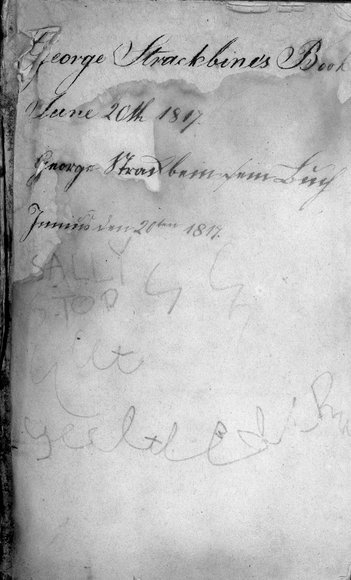 George Strackbine's Book
June 20th 1817.
George Stradbein sein Buch
Junius den 20ten 1817.
SALLY
STOP